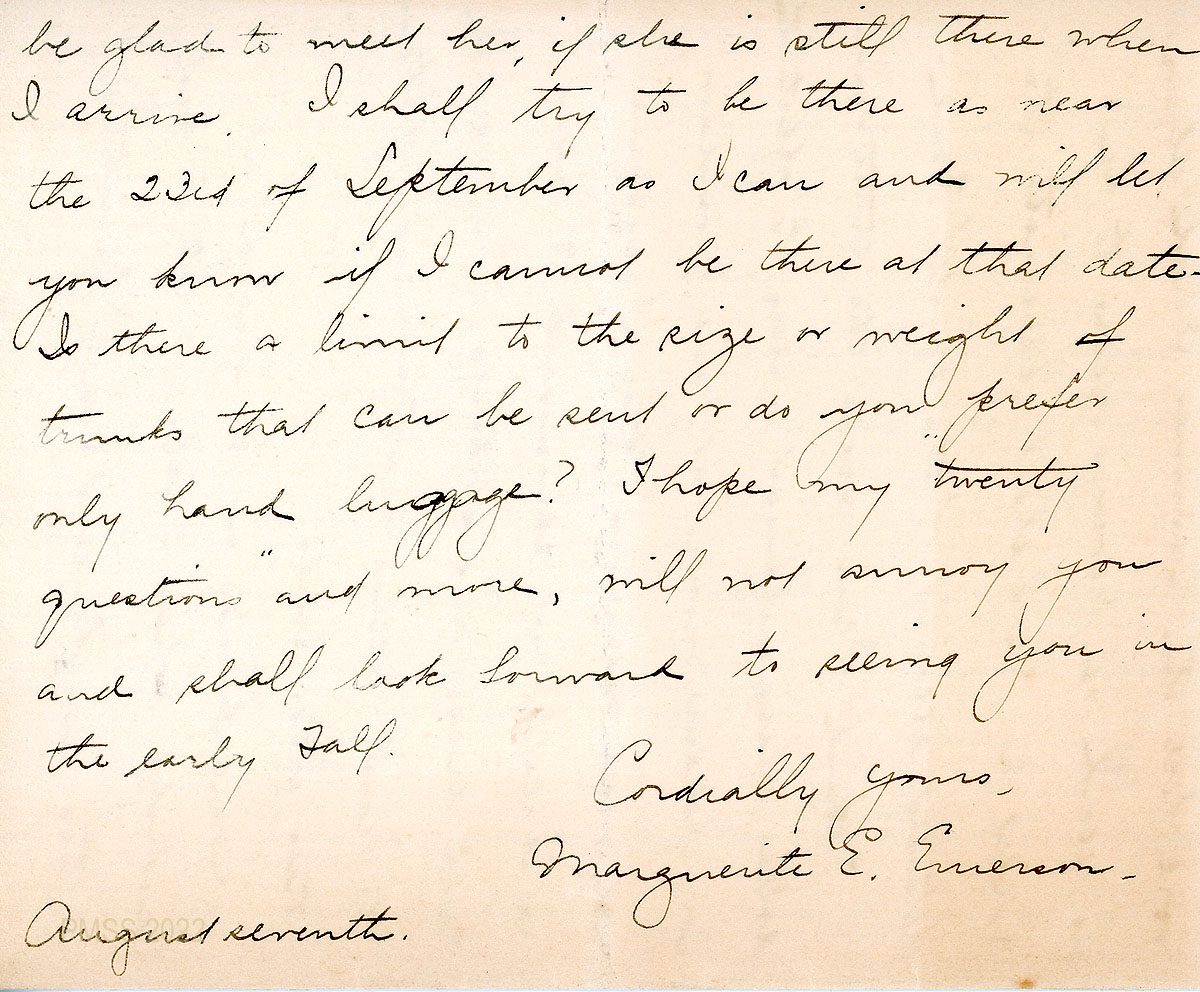 be glad to meet her, if she is still there when
I arrive. I shall try to be there as near
the 23rd of September as I can and will let
you know if I cannot be there at that date.
Is there a limit to the size or weight of
trunks that can be sent or do you prefer
only hand luggage? I hope my "twenty
questions" and more, will not annoy you
and shall look forward to seeing you in
the early Fall.
Cordially yours,
Marguerite E. Emerson.
August seventh.
PMSS 2022